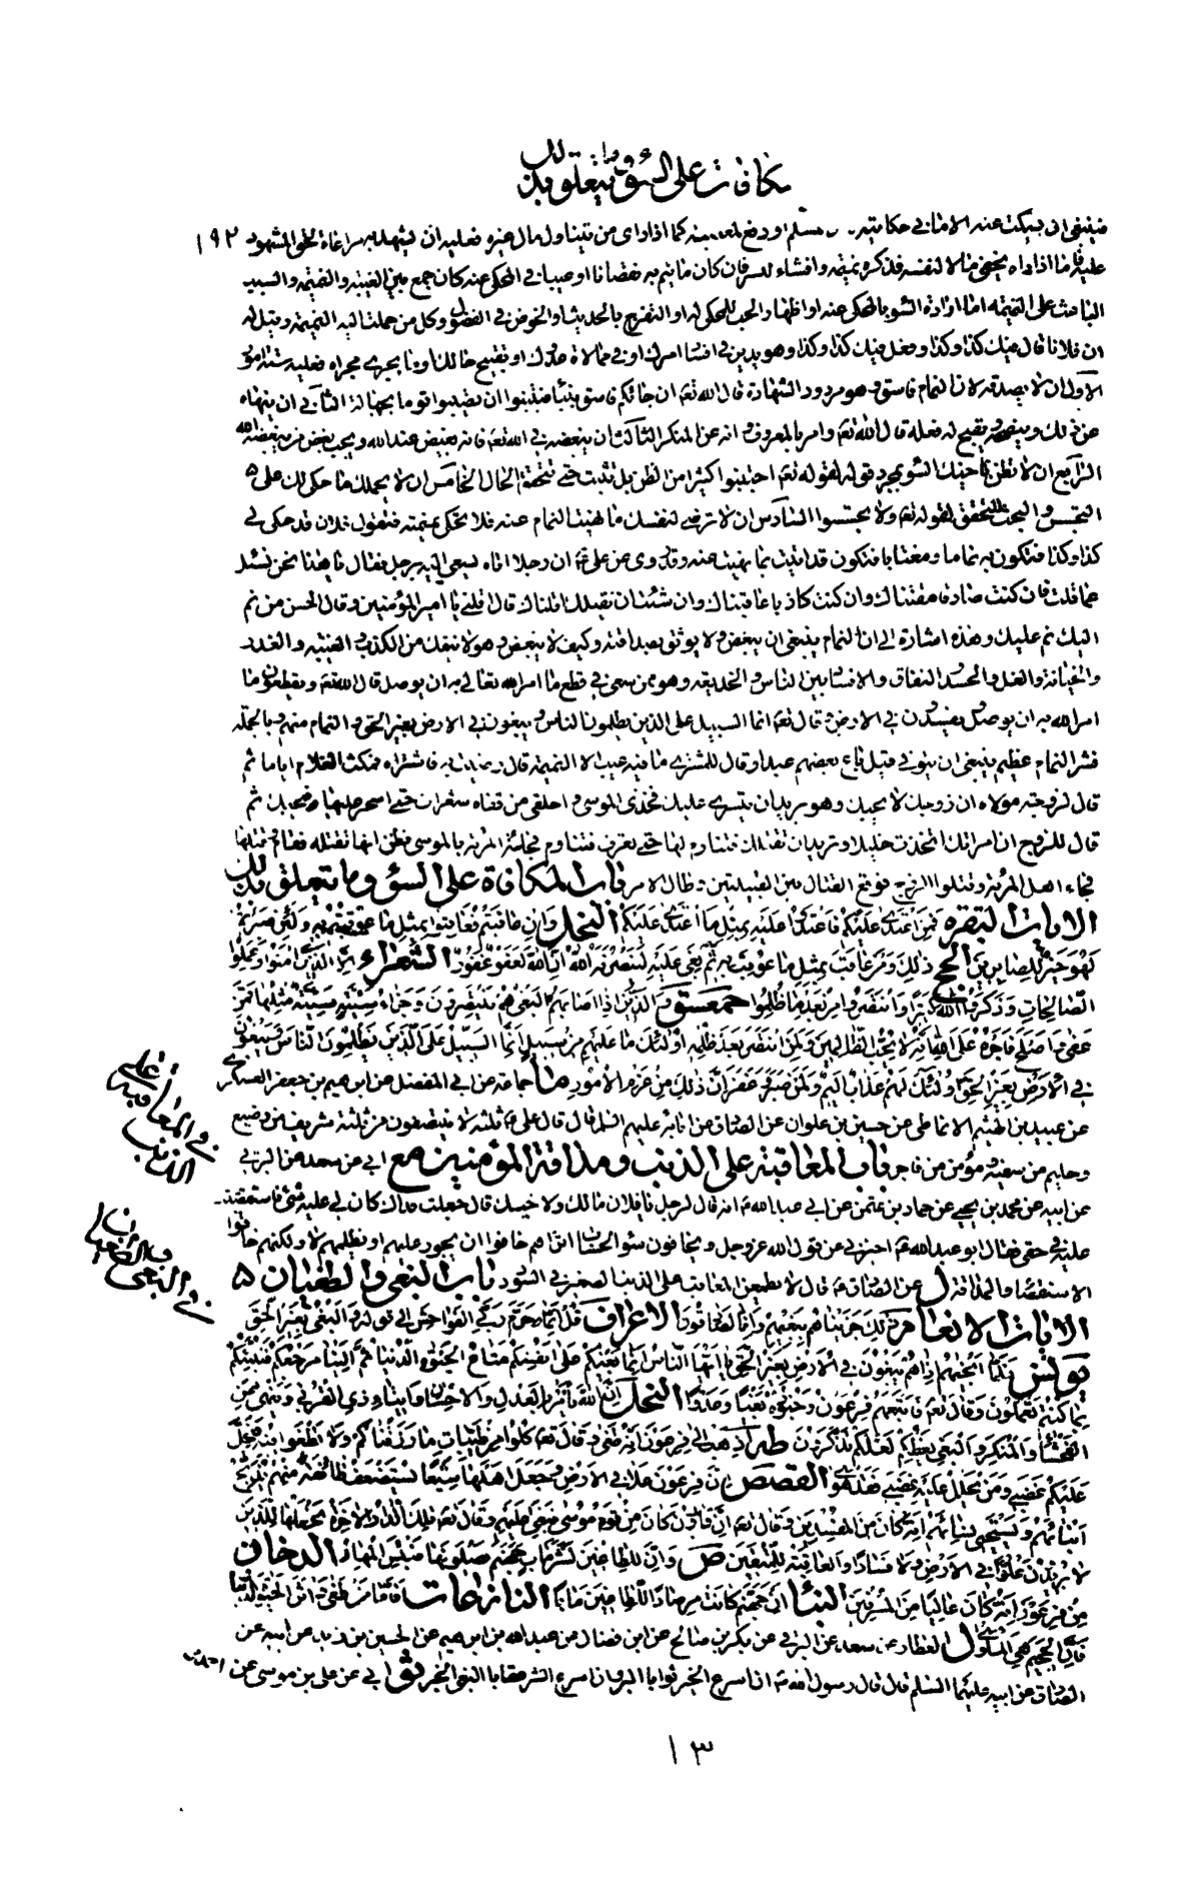 مكافات على السوء وما يتعلق بذلك
فينبغي ان يسكت عنه الا ما في حكايته مسلم او دفع لمعصية كما اذا راى من يتناول مال غيره فعليه ان يشهد به مراعاة لحق المشهود ١٩٢
عليه فاما اذا راه يخفي مالا لنفسه فذكره نميمة وافشاء للسر فان كان ما ينم به نقصانا او عيبا في المحكى عنه كان جمع بين الغيبة والنميمة والسبب
الباعث على النميمة اما ارادة السوء بالمحكى عنه او اظهار الحب للمحكى له او التفرج بالحديث او الخوض في الفضول وكل من حملت اليه النميمة وقيل له
ان فلانا قال فيك كذا وكذا وفعل فيك كذا وكذا وهو يدبر في افساد امرك او في ممالاة عدوك او تقبيح حالك او ما يجري مجراه فعليه ستة امور
الاول ان لا يصدقه لان النمام فاسق وهو مردود الشهادة قال الله تعم ان جائكم فاسق بنبأ فتبينوا ان تصيبوا قوما بجهالة الثاني ان ينهاه
عن ذلك وينصحه ويقبح له فعله قال الله تعم وامر بالمعروف وانه عن المنكر الثالث ان يبغضه في الله تعم فانه بغيض عند الله ويجب بغض من يبغضه الله
الرابع ان لا تظن باخيك السوء بمجرد قوله لقوله تعم اجتنبوا كثيرا من الظن بل تثبت حتى تتحقق الحال الخامس ان لا يحملك ما حكى لك على
التجسس والبحث للتحقق لقوله تعم ولا تجسسوا السادس ان لا ترضى لنفسك ما نهيت النمام عنه فلا تحكى نميمته فتقول فلان قد حكى لي
كذا وكذا فتكون به نماما ومغتابا فتكون قد اتيت بما نهيت عنه وقد روى عن علي ع ان رجلا اتاه يسعى اليه برجل فقال يا هذا نحن نسئل
عما قلت فان كنت صادقا مقتناك وان كنت كاذبا عاقبناك وان شئت ان نقيلك اقلناك قال اقلني يا امير المؤمنين وقال الحسن من نم
اليك نم عليك وهذه اشارة الى ان النمام ينبغي ان يبغض ولا يوثق بصداقته وكيف لا يبغض وهو لا ينفك من الكذب والغيبة والغدر
والخيانة والغل والحسد والنفاق والافساد بين الناس والخديعة وهو ممن سعى في قطع ما امر الله تعالى به ان يوصل قال الله تعم ويقطعون ما
امر الله به ان يوصل ويفسدون في الارض وقال تعم انما السبيل على الذين يظلمون الناس ويبغون في الارض بغير الحق والنمام منهم وبالجملة
فشر النمام عظيم ينبغي ان يتوقى قيل باع بعضهم عبدا وقال للمشتري ما فيه عيب الا النميمة قال رضيت به فاشتراه فمكث الغلام اياما ثم
قال لزوجة مولاه ان زوجك لا يحبك وهو يريد ان يتسرى عليك فخذي الموسى واحلقي من قفاه شعرات حتى اسحر عليها فيحبك ثم
قال للزوج ان امراتك اتخذت خليلا وتريد ان تقتلك فتناوم لها حتى تعرف فتناوم فجائت المراة بالموسى فظن انها تقتله فقام وقتلها
فجاء اهل المراة وقتلوا الزوج فوقع القتال بين القبيلتين وطال الامر باب المكافاة على السوء وما يتعلق بذلك
الايات البقرة فمن اعتدى عليكم فاعتدوا عليه بمثل ما اعتدى عليكم النحل وان عاقبتم فعاقبوا بمثل ما عوقبتم به ولئن صبرتم
لهو خير للصابرين الحج ذلك ومن عاقب بمثل ما عوقب به ثم بغي عليه لينصرنه الله ان الله لعفو غفور الشعراء الا الذين امنوا وعملوا
الصالحات وذكروا الله كثيرا وانتصروا من بعد ما ظلموا حمعسق والذين اذا اصابهم البغي هم ينتصرون وجزاء سيئة سيئة مثلها فمن
عفى واصلح فاجره على الله انه لا يحب الظالمين ولمن انتصر بعد ظلمه اولئك ما عليهم من سبيل انما السبيل على الذين يظلمون الناس ويبغون
في الارض بغير الحق اولئك لهم عذاب اليم ولمن صبر وغفر ان ذلك من عزم الامور ما جماعة عن ابي المفضل عن ابرهيم بن جعفر العسكري
عن عبيد بن الهيثم الانماطي عن حسين بن علوان عن الصادق عن ابائه عليهم السلم قال قال علي ع ثلثة لا ينتصفون من ثلثة شريف من وضيع
وحليم من سفيه ومؤمن من فاجر باب المعاقبة على الذنب ومداقة المؤمنين مع ابي عن سعد عن البرقي
عن ابيه عن محمد بن يحيى عن حماد بن عثمن عن ابي عبد الله ع انه قال لرجل يا فلان مالك ولاخيك قال جعلت فداك كان لي عليه شئ فاستقصيت
عليه في حقي فقال ابو عبد الله ع اخبرني عن قول الله عز وجل ويخافون سوء الحساب اتراهم خافوا ان يجور عليهم او يظلمهم لا ولكنهم خافوا
الاستقصاء والمداقة ل عن الصادق ع قال لا يطمعن المعاقب على الذنب الصغير في السؤدد باب البغي والطغيان
الايات الانعام ذلك جزيناهم ببغيهم وانا لصادقون الاعراف قل انما حرم ربي الفواحش الى قوله والبغي بغير الحق
يونس فلما انجيهم اذا هم يبغون في الارض بغير الحق يا ايها الناس انما بغيكم على انفسكم متاع الحيوة الدنيا ثم الينا مرجعكم فننبئكم
بما كنتم تعملون وقال تعم فاتبعهم فرعون وجنوده بغيا وعدوا النحل ان الله يأمر بالعدل والاحسان وايتاء ذي القربى وينهى عن
الفحشاء والمنكر والبغي يعظكم لعلكم تذكرون طه اذهب الى فرعون انه طغى وقال تعم كلوا من طيبات ما رزقناكم ولا تطغوا فيه فيحل
عليكم غضبي ومن يحلل عليه غضبي فقد هوى القصص ان فرعون علا في الارض وجعل اهلها شيعا يستضعف طائفة منهم يذبح
ابنائهم ويستحيي نسائهم انه كان من المفسدين وقال تعم ان قارون كان من قوم موسى فبغى عليهم وقال تعم تلك الدار الاخرة نجعلها للذين
لا يريدون علوا في الارض ولا فسادا والعاقبة للمتقين ص وان للطاغين لشر ماب جهنم يصلونها فبئس المهاد الدخان
من فرعون انه كان عاليا من المسرفين النبأ ان جهنم كانت مرصادا للطاغين مابا النازعات فاما من طغى واثر الحيوة الدنيا
فان الجحيم هي المأوى ل العطار عن سعد عن البرقي عن بكر بن صالح عن ابن فضال عن عبد الله بن ابرهيم عن الحسين بن زيد عن ابيه عن
الصادق عن ابيه عليهما السلم قال قال رسول الله ص ان اسرع الخير ثوابا البر وان اسرع الشر عقابا البغي الخبر ثو ابي عن علي بن موسى عن احمد
في المعاقبة على
الذنب
في البغي والطغيان
١٣